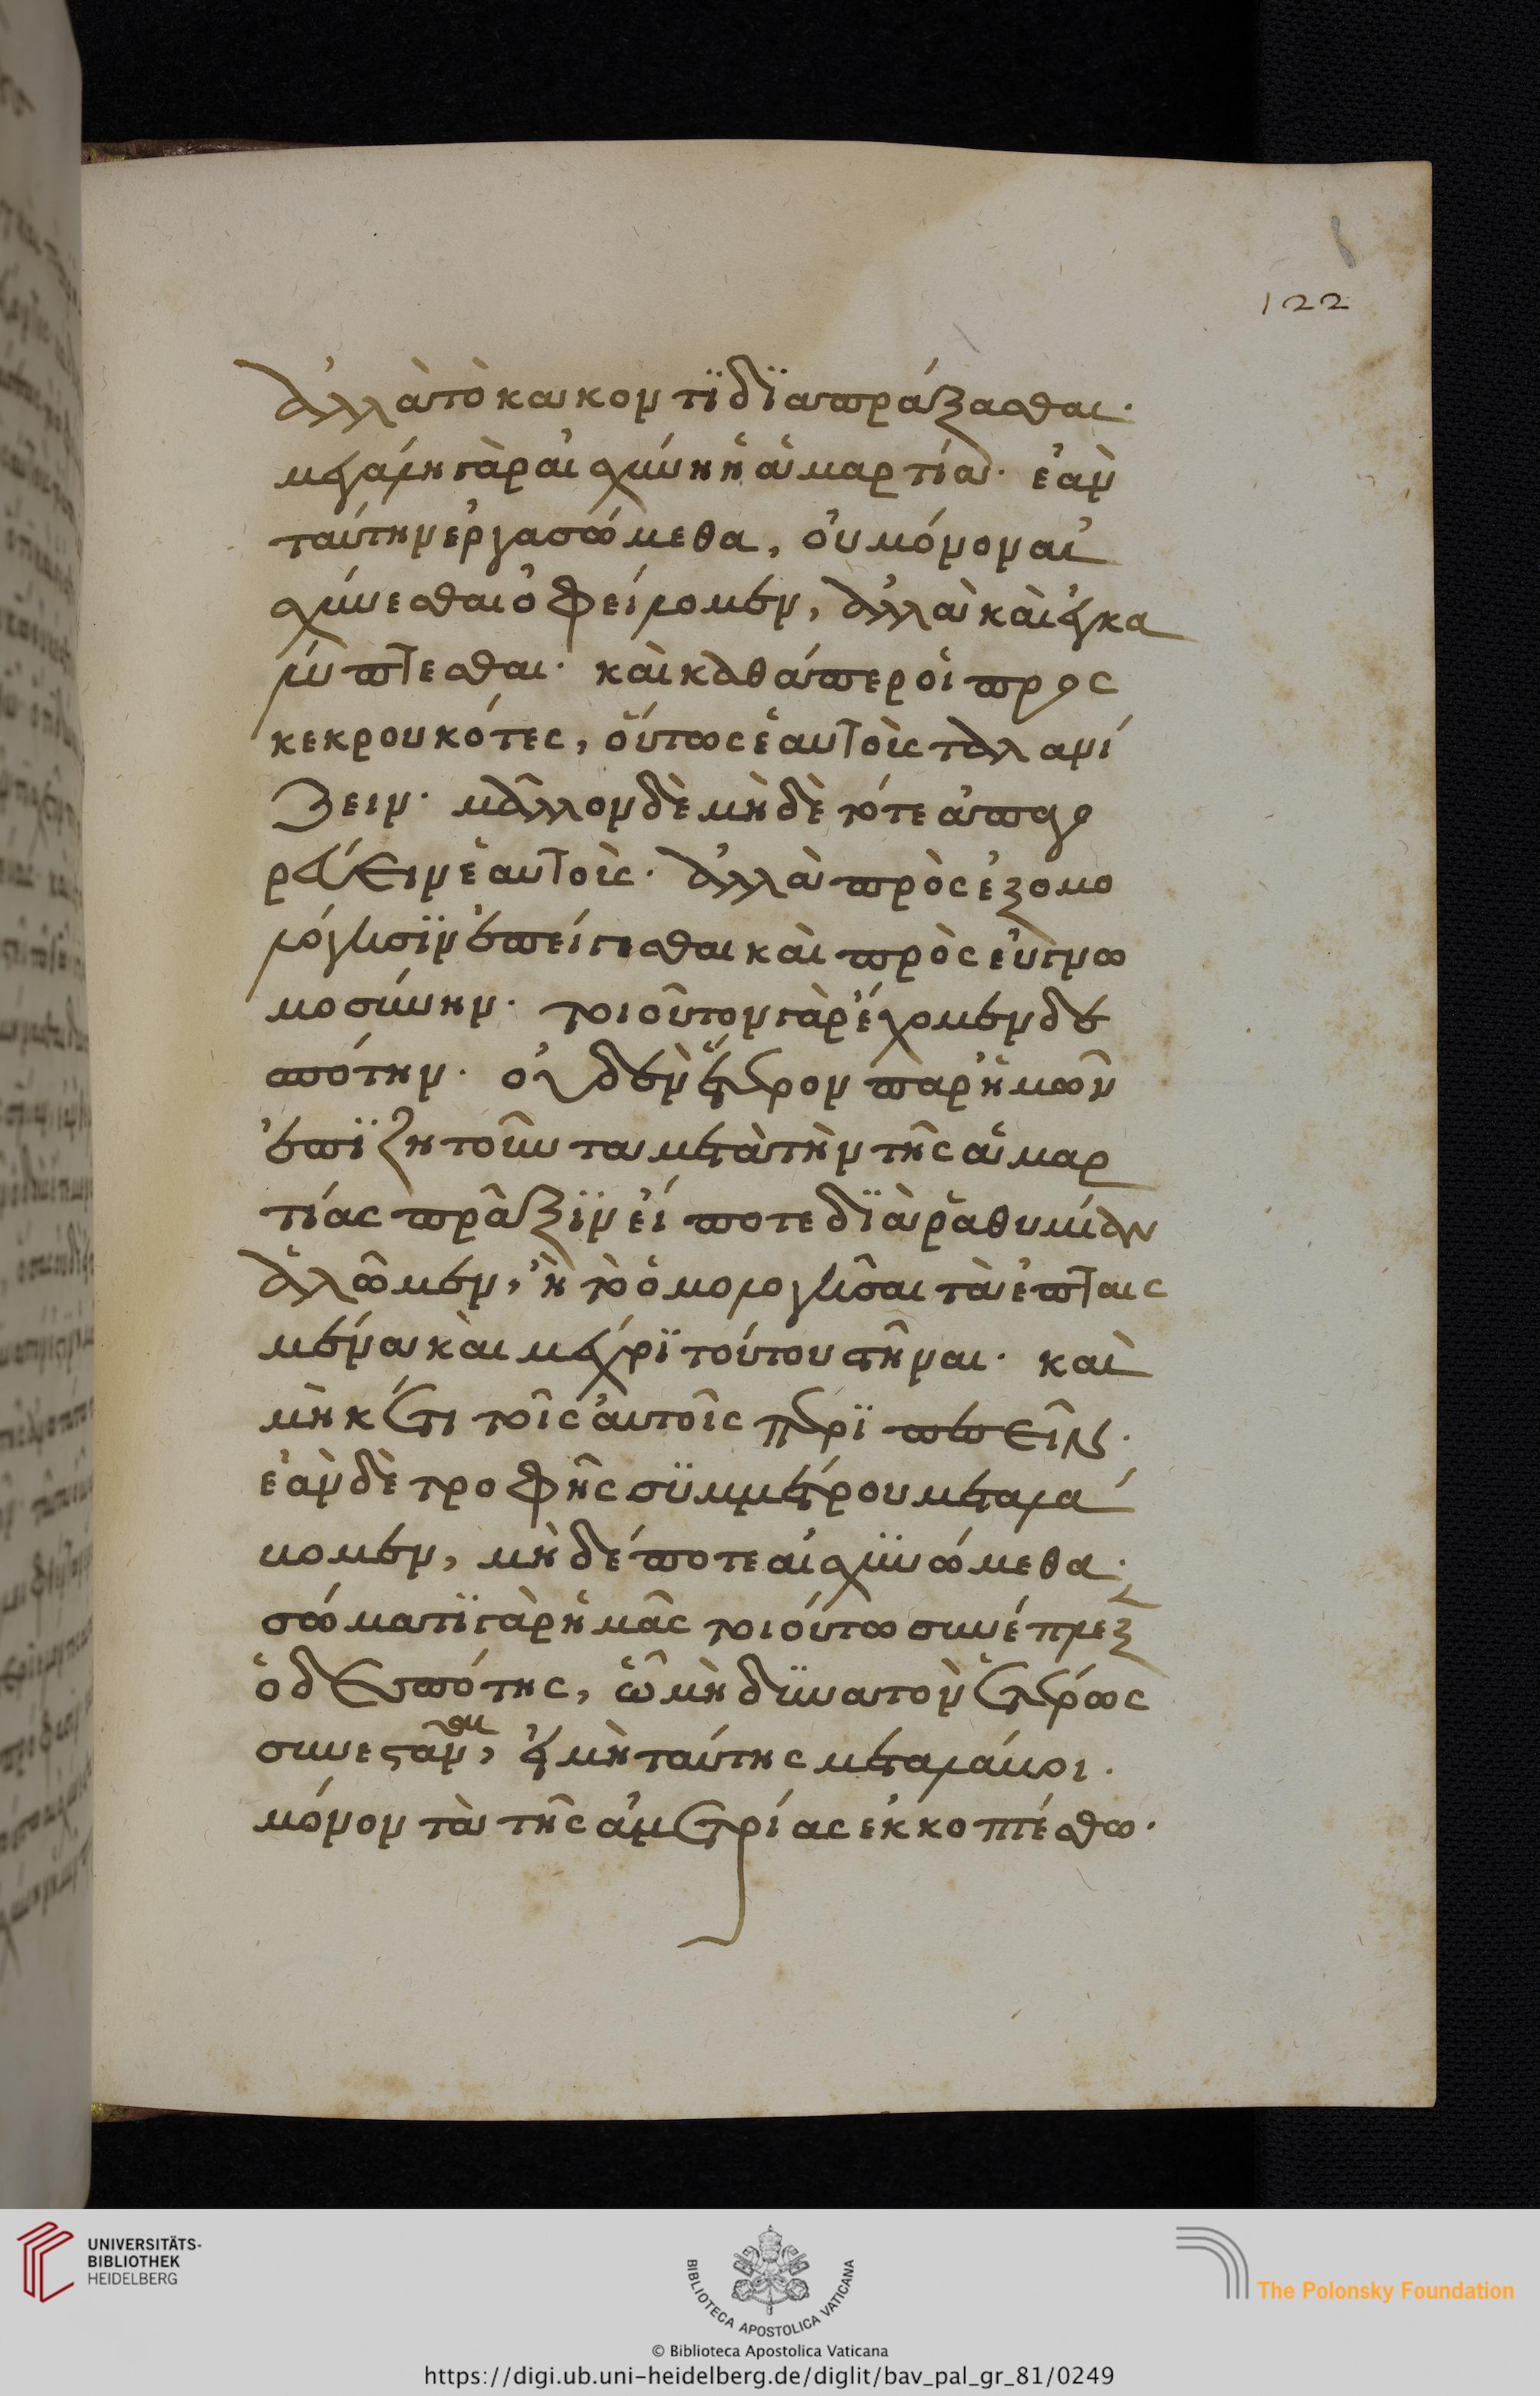 122
ἀλλὰ τὸ κακόν τϊ δϊαπράξασθαι·
μεγάλη γὰρ αἰσχύνη ἡ ἁμαρτία· ἐὰν
ταύτην ἐργασώμεθα, οὐ μόνον αἰ
σχύνεσθαι ὀφείλομεν, ἀλλὰ καὶ ἐγκα
λύπτεσθαι· καὶ καθάπερ οἱ προσ
κεκρουκότες, οὕτως ἑαυτοὺς ταλανί
ζειν· μᾶλλον δὲ μὴδὲ τότε ἀπαγο
ρεύειν ἑαυτοὺς· ἀλλὰ πρὸς ἐξομο
λόγησϊν ἐπείγεσθαι καὶ πρὸς εὐγνω
μοσύνην· τοιοῦτον γὰρ ἔχομεν δε
σπότην· οὐδὲν ἕτερον παρ ἡμῶν
ἐπϊζητοῦντα μετὰ τὴν τῆς ἁμαρ
τίας πρᾶξϊν εἴ ποτε δϊὰ ῥαθυμίαν
ἁλῶμεν, ἢ τὸ ὁμολογῆσαι τὰ ἐπται
σμένα καὶ μέχρϊ τούτου στῆναι· καὶ
μὴκέτι τοῖς ἀυτοῖς περϊπεσεῖν·
ἐὰν δὲ τροφῆς σϋμμέτρου μεταλά
βωμεν, μὴδέποτε αἰσχϋνώμεθα·
σώματϊ γὰρ ἡμᾶς τοιούτω συνέπλεξεν
ὁ δεσπότης, ὧ μὴ δϋνατὸν ἑτέρως
συνεστᾶναι, εἰ μὴ ταύτης μεταλάβοι·
μόνον τὰ τῆς ἀμετρίας ἐκκοπτέσθω·
UNIVERSITÄTS-
BIBLIOTHEK
HEIDELBERG
BIBLIOTECA APOSTOLICA VATICANA
The Polonsky Foundation
© Biblioteca Apostolica Vaticana
https://digi.ub.uni-heidelberg.de/diglit/bav_pal_gr_81/0249